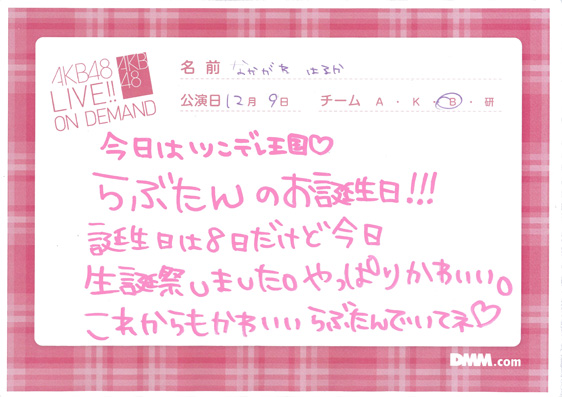 AKB48
LIVE!!
ON DEMAND
AKB
48
名前 なかがわ はるか
公演日 12月9日 チーム A・K・B・研
今日はツンデレ王国♡
らぶたんのお誕生日!!!
誕生日は8日だけど今日
生誕祭しました。やっぱりかわいい。
これからもかわいいらぶたんでいてネ♡
DMM.com